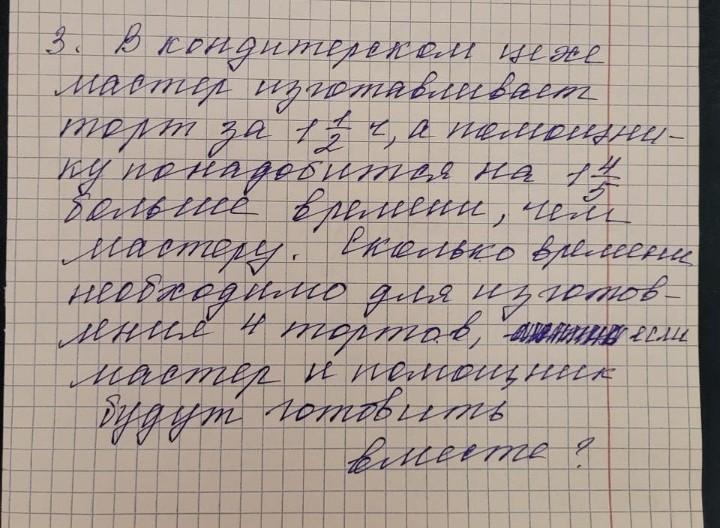 3. В кондитерском цехе
мастер изготавливает
торт за 1 1/2 ч, а помощни-
ку понадобится на 1 4/5
больше времени, чем
мастеру. Сколько времени
необходимо для изготов-
ления 4 тортов, если
мастер и помощник
будут готовить
вместе?